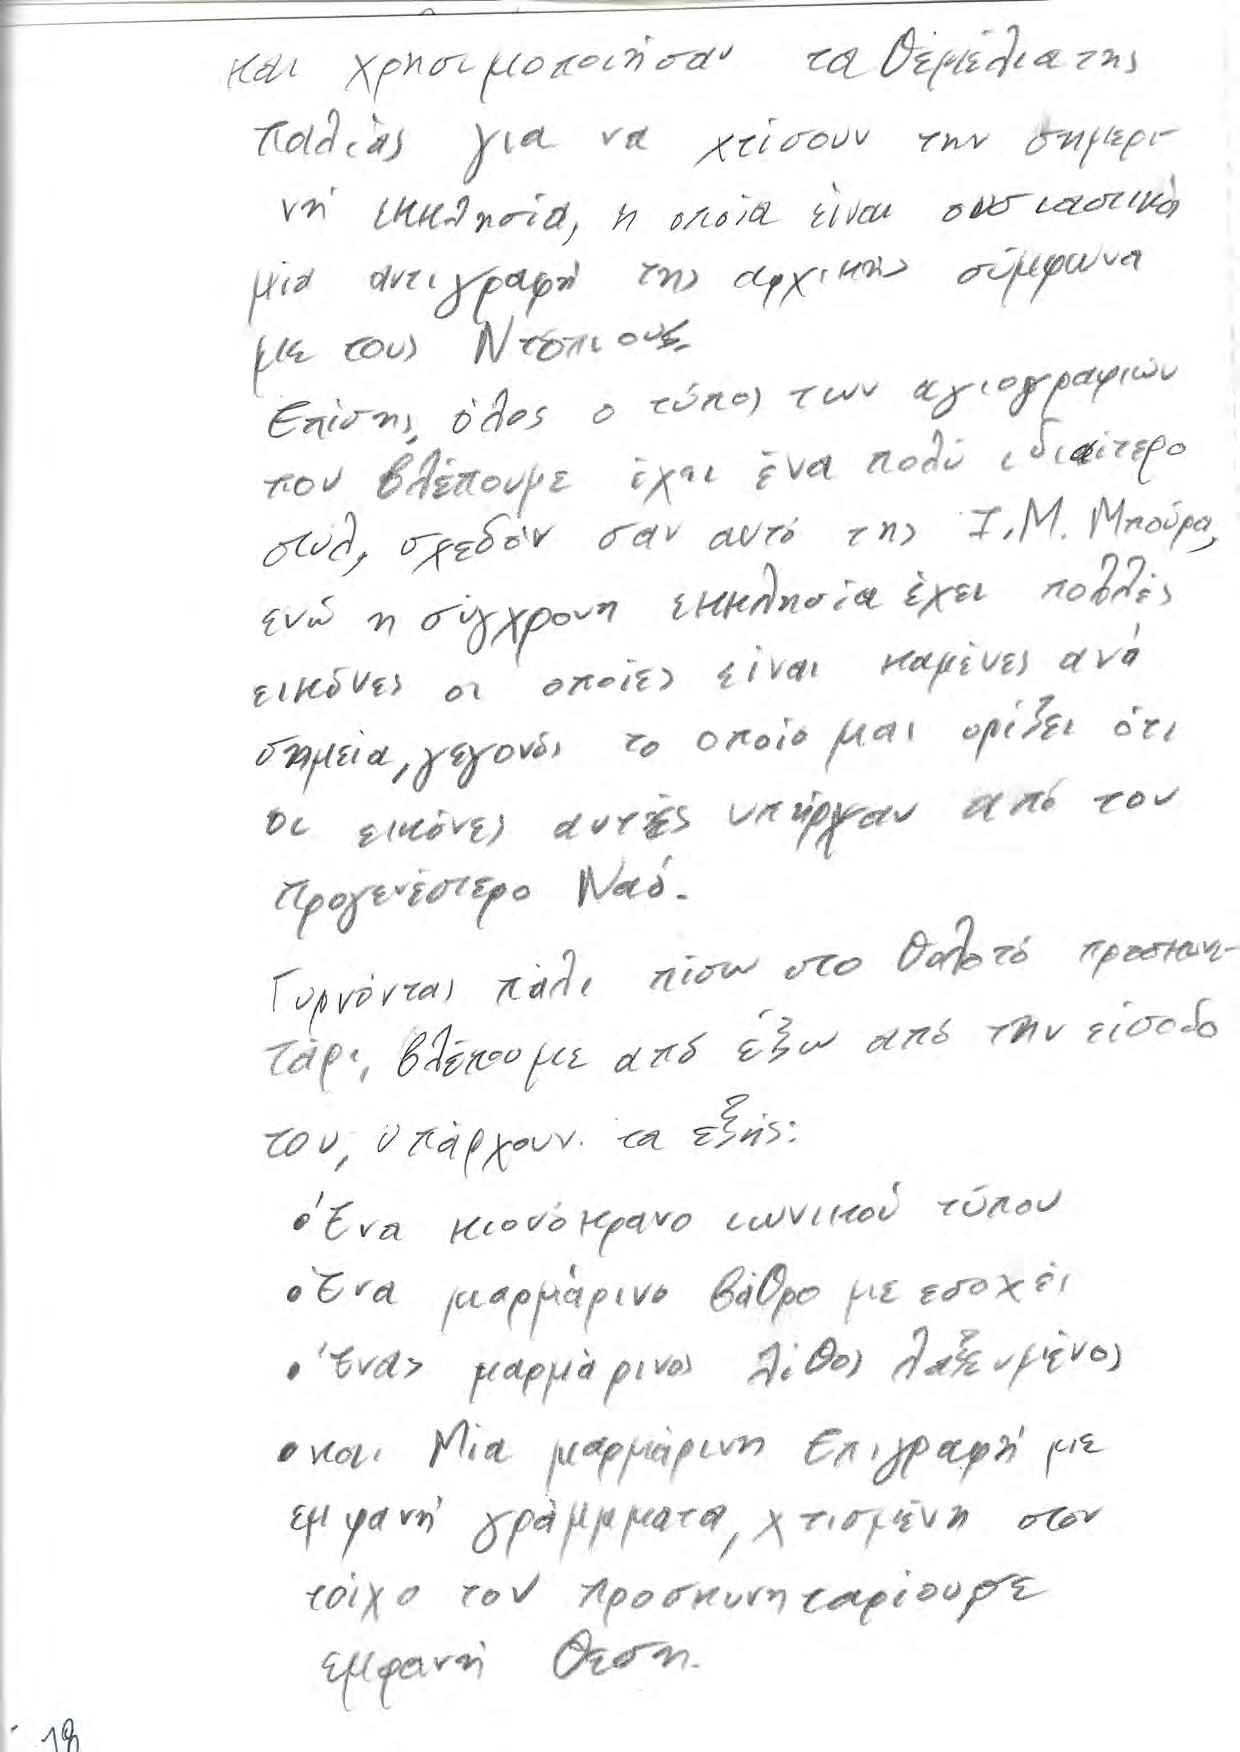 και χρησιμοποιήσαν τα θεμέλια της
παλιάς για να χτίσουν την σημερι-
νή εκκλησία, η οποία είναι ουσιαστικά
μία αντιγραφή της αρχικής σύμφωνα
με τους Ντόπιους.
Επίσης, όλος ο τύπος των αγιογραφιών
που βλέπουμε έχει ένα πολύ ιδιαίτερο
στυλ, σχεδόν σαν αυτό της Ι.Μ. Μπούρα,
ενώ η σύγχρονη εκκλησία έχει πολλές
εικόνες οι οποίες είναι καμένες ανά
σημεία, γεγονός το οποίο μας ορίζει ότι
οι εικόνες αυτές υπήρχαν από τον
προγενέστερο Ναό.
Γυρνόντας πάλι πίσω στο θολοτό προσκυνη-
τάρι, βλέπουμε από έξω από την είσοδο
του, υπάρχουν τα εξής:
• Ένα κιονόκρανο ιωνικού τύπου
• Ένα μαρμάρινο βάθρο με εσοχέι
• Ένας μαρμάρινος λίθος λαξευμένος
• και Μία μαρμάρινη Επιγραφή με
εμφανή γράμμματα, χτισμένη στον
τοίχο του προσκυνηταρίου σε
εμφανή θεση.
18